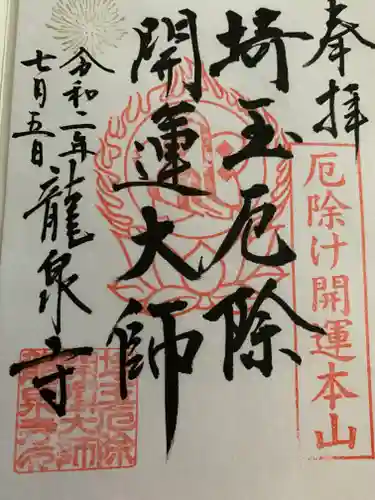 奉拝
厄除け開運本山
埼玉厄除
開運大師
令和二年
七月五日
龍泉寺
埼玉厄除
開運大師
龍泉寺印